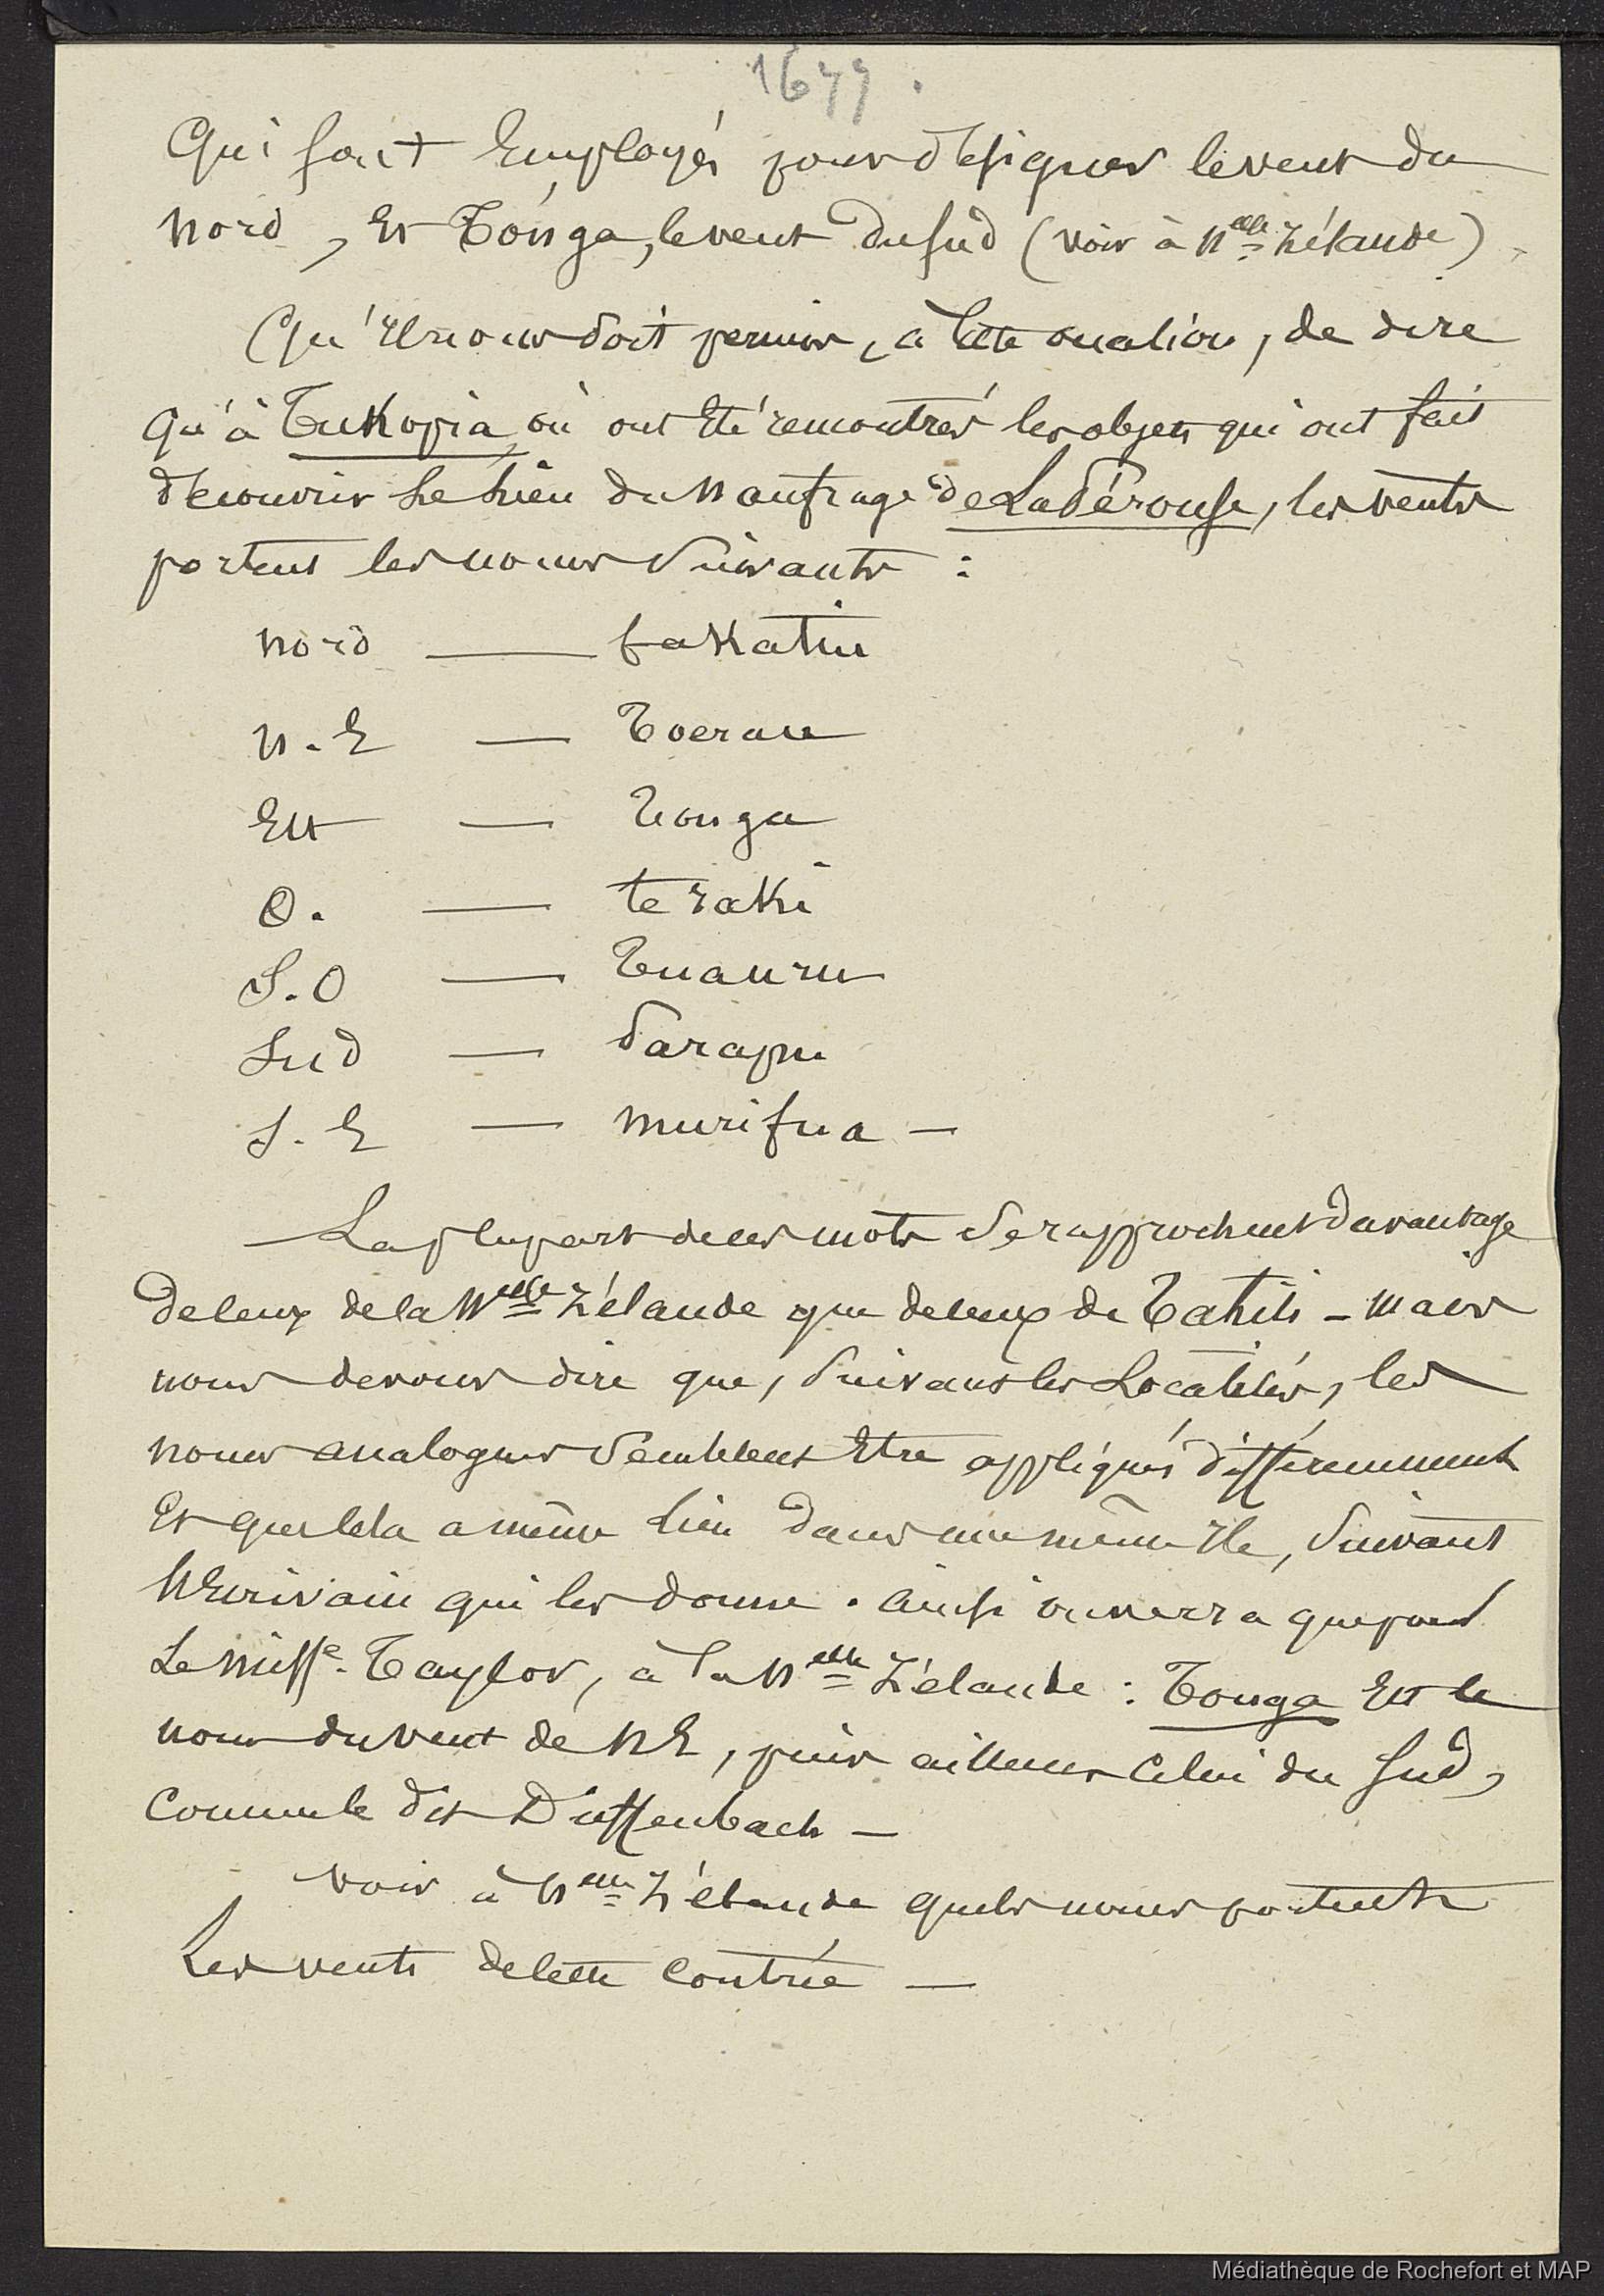 1677.
qui sont employés pour désigner le vent du
nord, et Tonga, le vent du sud (voir à Nelle Zélande).
Qu'il nous soit permis, à cette occasion, de dire
qu'à Tukopia, où ont été rencontrés les objets qui ont fait
découvrir le lieu du naufrage de LaPérouse, les vents
portent les noms suivants :
nord — fakatiu
N.E — Toerau
Est — Tonga
O. — te raki
S.O — Tuauru
Sud — Parapu
S.E — murifua —
— La plupart de ces mots se rapprochent davantage
de ceux de la Nelle Zélande que de ceux de Tahiti - mais
nous devons dire que, suivant les Localités, les
noms analogues semblent être appliqués différemment
et que cela a même lieu dans une même île, suivant
l'Ecrivain qui les donne. ainsi on verra que pour
Le Misse. Taylor, à la Nelle Zélande : Tonga est le
nom du vent de NE, puis ailleurs celui du Sud,
comme le dit Dieffenbach —
voir à Nelle Zélande quels noms portent
Les vents de cette contrée —
Médiathèque de Rochefort et MAP